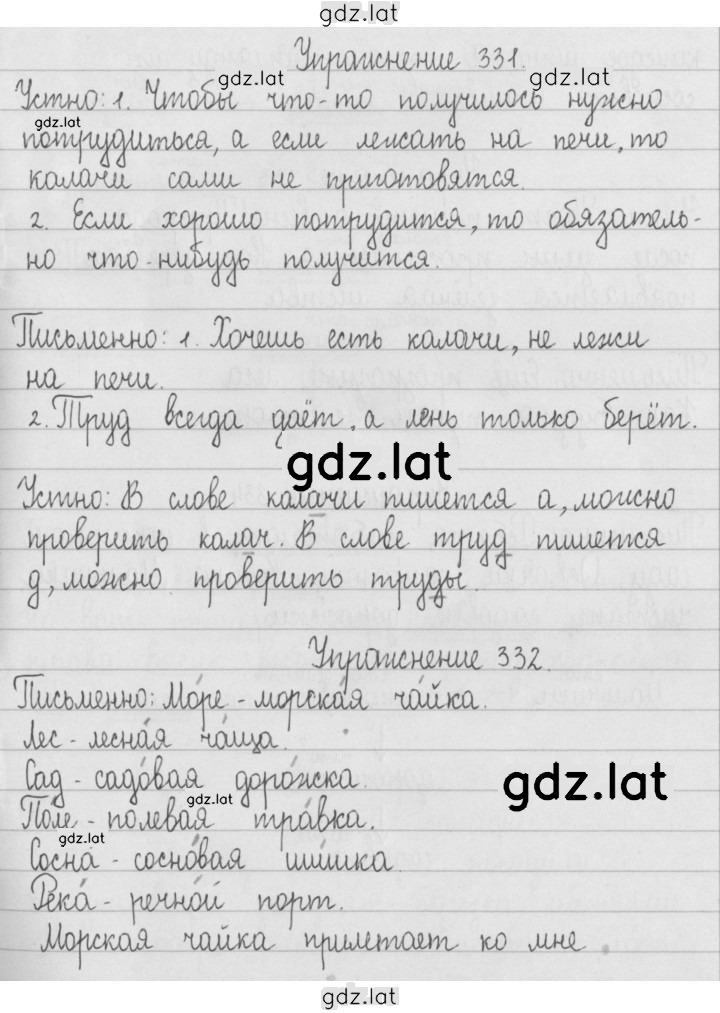 gdz.lat
Упражнение 331.
gdz.lat gdz.lat
Устно: 1. Чтобы что-то получилось нужно
gdz.lat
потрудиться, а если лежать на печи, то
калачи сами не приготовятся.
2. Если хорошо потрудится, то обязатель-
но что-нибудь получится.
Письменно: 1. Хочешь есть калачи, не лежи
на печи.
2. Труд всегда даёт, а лень только берёт.
gdz.lat
Устно: В слове калачи пишется а, можно
проверить калач. В слове труд пишется
д, можно проверить труды.
Упражнение 332.
Письменно: Мо́ре - морска́я ча́йка.
Лес - лесна́я ча́ща.
Сад - садо́вая доро́жка.
gdz.lat
gdz.lat
По́ле - полева́я тра́вка.
gdz.lat
Сосна́ - сосно́вая ши́шка.
Река́ - речно́й порт.
Морская чайка прилетает ко мне
gdz.lat